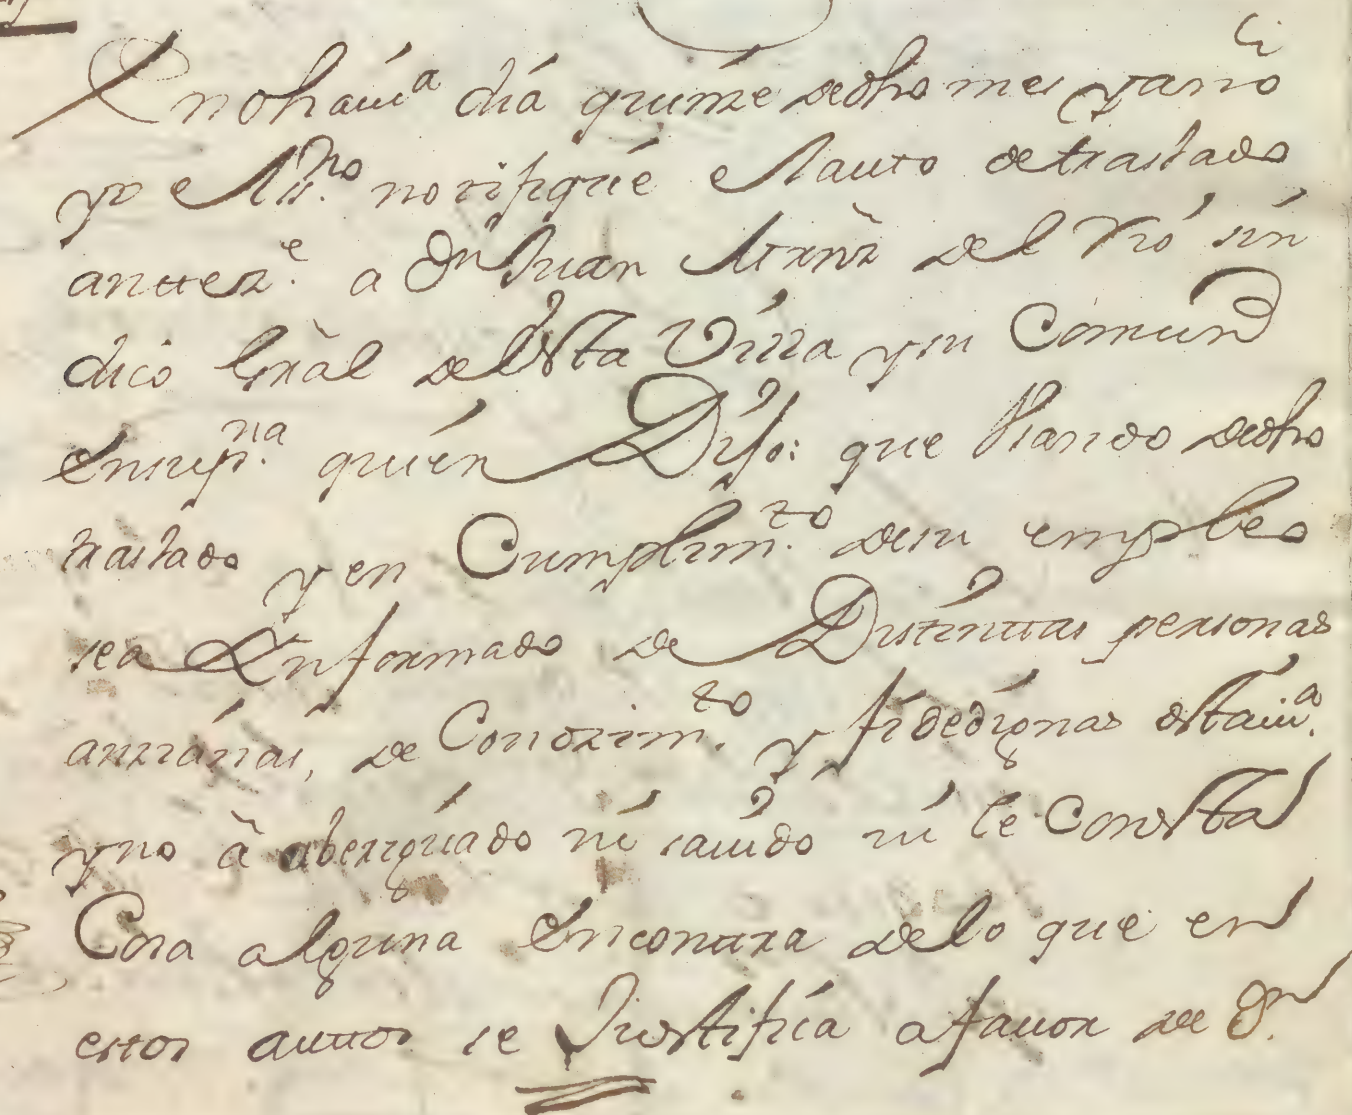 En dha uiª dia quinze de dho mes y año
yo el ssno notifique el auto de traslado
antteze a Dn Juan Mrnz del Rio sin
dico Gral de esta Villa y su Comund
en su pna quien Dijo: que Usando de dho
traslado y en Cumplimto de su empleo
se a Ynformado de Disttinttas personas
anzianas, de Conozimto y fidedignas desta uiª
y no â aberiguado ni sauido ni le Consta
Cosa alguna en conttra de lo que en
estos auttos se Justifica a fauor de Dn